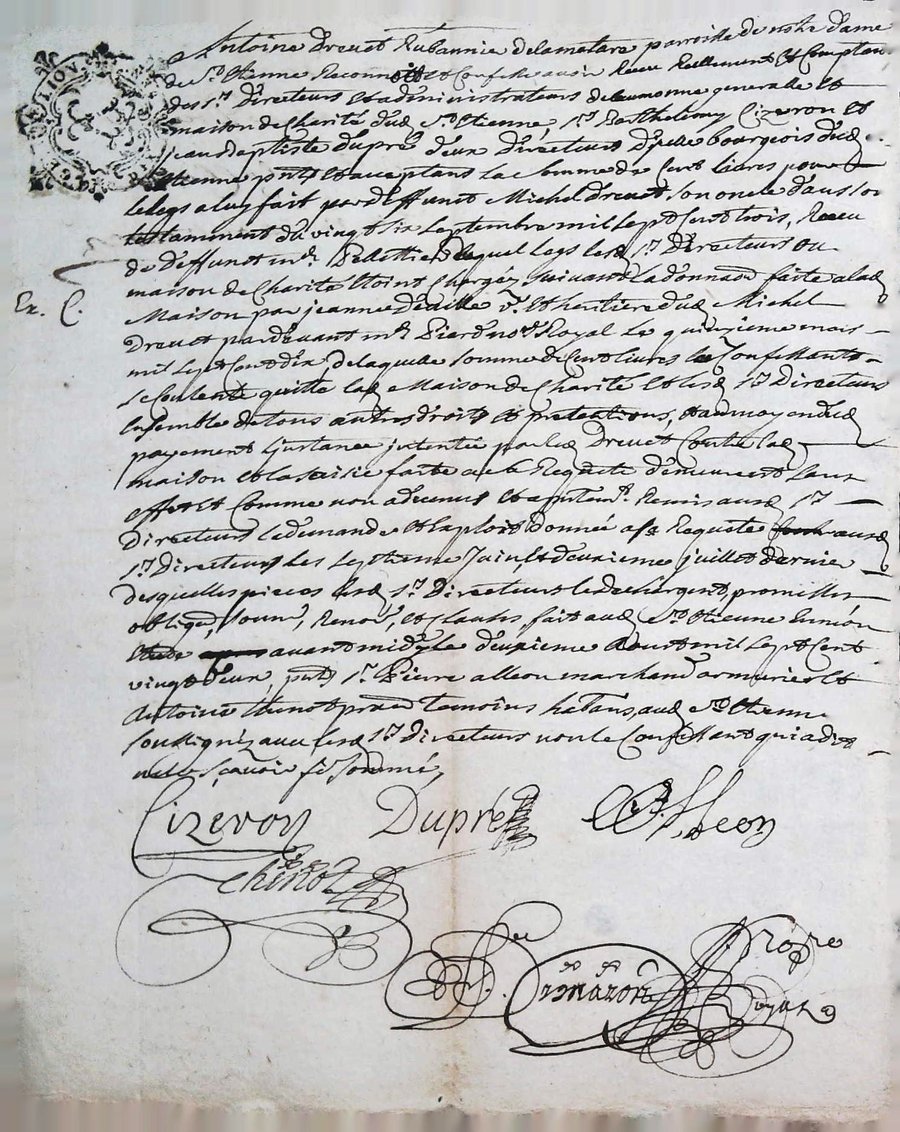 Antoine Drevet Rubannie delamotare parroisse de nostre dame
de St Etienne Reconnoit et Confesse avoir Receu Reellement et Comptan
des srs Directeurs et administrateurs de laumonne generalle et
maison de Charité dud St Etienne, sr Barthelemy Cizeron et
jean Baptiste dupré deux directeurs d'jcelle bourgeois dud
St Etienne pnts et acceptans la Somme de Cent livres pour
le legs a luy fait par deffunct Michel drevet son oncle dans son
testamment du vingt six septembre mil sept Cent trois, Receu
de deffunct me Pelettier duquel legs lesd srs Directeurs ou
maison de Charité Etoint Chargés suivand la donnaon faite a lad
Ex. C.
Maison par jeanne deville ve et heritiere dud Michel
Drevet pardevant me Pierd nore Royal le quinzieme mars
mil sept Cent dix de laquelle somme de Cent livres le Confessant
se Contente quitte lad Maison de Charité et lesd srs Directeurs
Ensemble de tous autres droits et pretentions, et au moyen dud
payement Ljnstance jntentée par led Drevet Contre lad
maison et la saisie faite a sa Requete demeurent sans
effet et Comme non advenus et a presentemt Remis ausd srs
Directeurs la demande et Exploit donnée a sa Requeste ausd
srs Directeurs les septieme Juin et deuxieme juillet dernier
desquelles pieces lesd srs Directeurs le dechargent, promettes
obligaon, soumn, Renon, et Clauses, fait aud St Etienne
avant midy le deuxieme Aoust mil sept Cent
vingt deux, pnts sr Pierre alleon marchand armurier et
Antoine Thinot praen temoins habitans, aud St Etienne
soussignéz avec lesd srs Directeurs non le Confessant qui a dit
ne le sçavoir fe sommé
Cizeron Dupré Alleon
Thinot
Nore
Royal